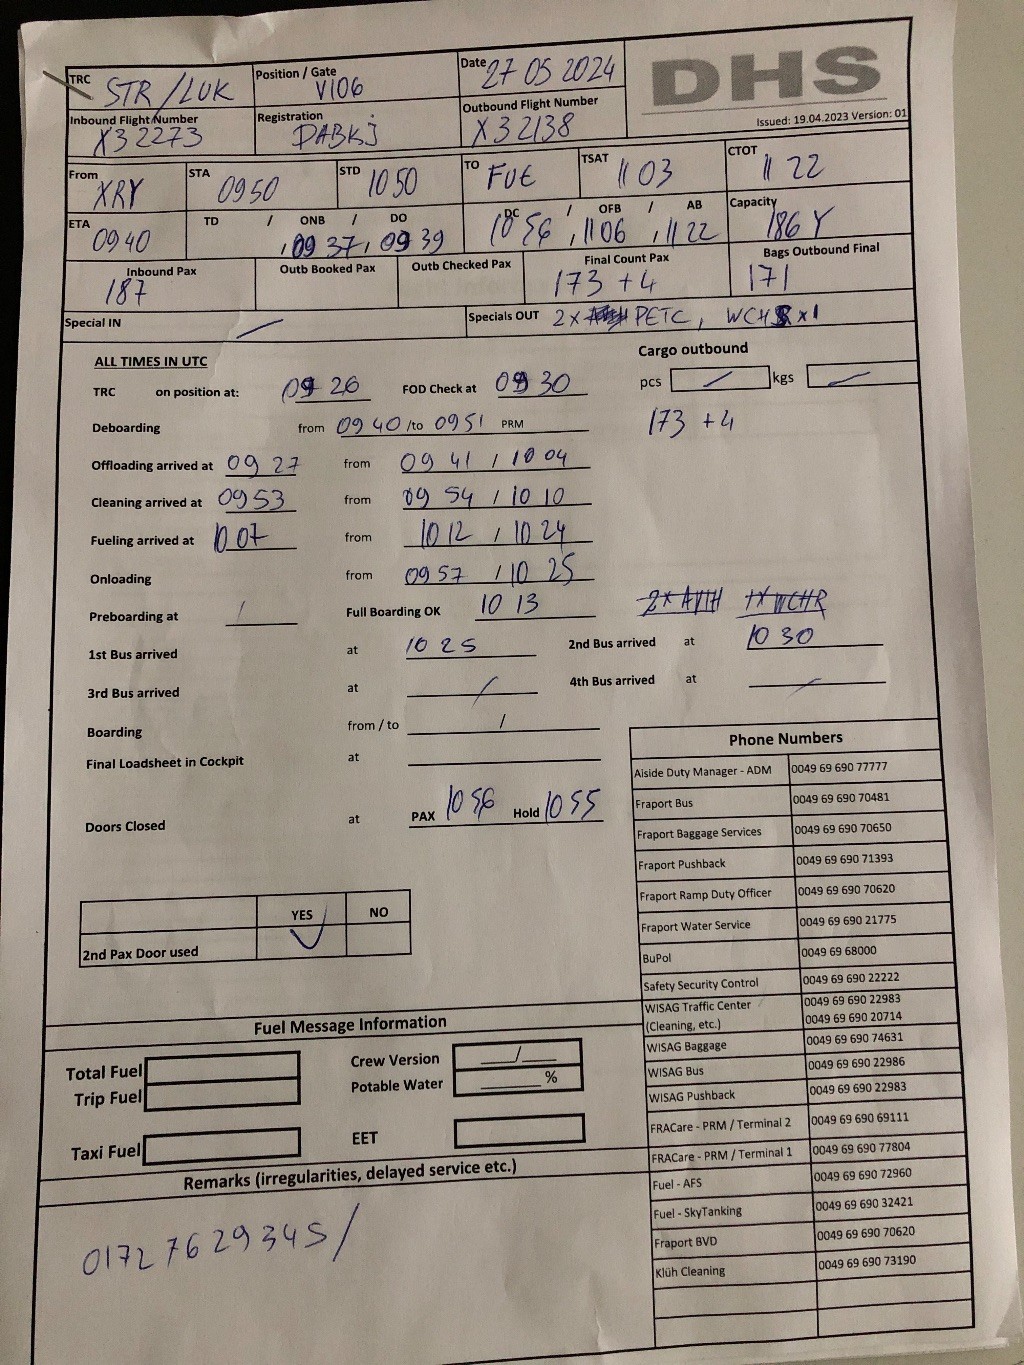 TRC STR/LUK Position / Gate V106 Date 27 05 2024 DHS
Issued: 19.04.2023 Version: 01
Inbound Flight Number X3 2273 Registration DABKJ Outbound Flight Number X3 2138
From XRY STA 0950 STD 1050 TO FUE TSAT 11 03 CTOT 11 22
ETA 0940 TD / ONB / DO , 09 37, 09 39 DC / OFB / AB 1056 , 1106 , 1122 Capacity 186 Y
Inbound Pax 187 Outb Booked Pax Outb Checked Pax Final Count Pax 173 +4 Bags Outbound Final 171
Special IN Specials OUT 2x PETC, WCH x1
ALL TIMES IN UTC Cargo outbound
TRC on position at: 09 26 FOD Check at 09 30 pcs kgs
Deboarding from 09 40 /to 09 51 PRM 173 +4
Offloading arrived at 09 27 from 09 41 / 10 04
Cleaning arrived at 0953 from 09 54 / 10 10
Fueling arrived at 10 07 from 10 12 / 10 24
Onloading from 0957 / 10 25
Preboarding at / Full Boarding OK 10 13 2x AVIH 1x WCHR
1st Bus arrived at 10 25 2nd Bus arrived at 10 30
3rd Bus arrived at / 4th Bus arrived at /
Boarding from / to /
Final Loadsheet in Cockpit at
Doors Closed at PAX 1056 Hold 1055
YES NO
2nd Pax Door used ✓
Phone Numbers
Aiside Duty Manager - ADM 0049 69 690 77777
Fraport Bus 0049 69 690 70481
Fraport Baggage Services 0049 69 690 70650
Fraport Pushback 0049 69 690 71393
Fraport Ramp Duty Officer 0049 69 690 70620
Fraport Water Service 0049 69 690 21775
BuPol 0049 69 68000
Safety Security Control 0049 69 690 22222
WISAG Traffic Center 0049 69 690 22983
(Cleaning, etc.) 0049 69 690 20714
WISAG Baggage 0049 69 690 74631
WISAG Bus 0049 69 690 22986
WISAG Pushback 0049 69 690 22983
FRACare - PRM / Terminal 2 0049 69 690 69111
FRACare - PRM / Terminal 1 0049 69 690 77804
Fuel - AFS 0049 69 690 72960
Fuel - SkyTanking 0049 69 690 32421
Fraport BVD 0049 69 690 70620
Klüh Cleaning 0049 69 690 73190
Fuel Message Information
Total Fuel Crew Version /
Trip Fuel Potable Water %
Taxi Fuel EET
Remarks (irregularities, delayed service etc.)
0172 7629345/